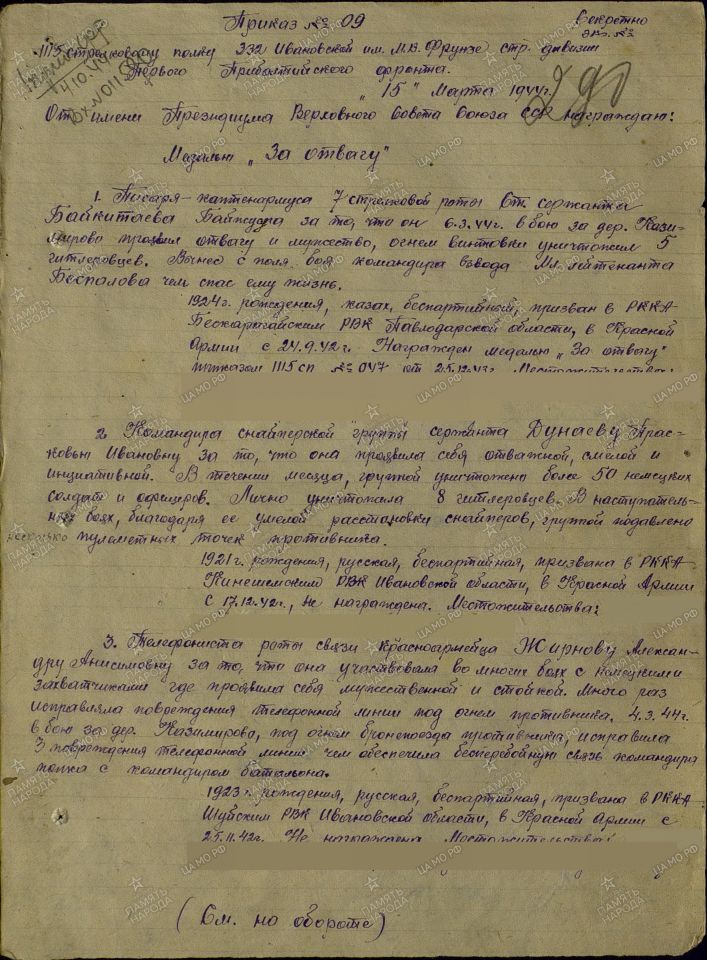 Приказ № 09
Секретно
экз. №2
1115 стрелковому полку 332 Ивановской им. М.В. Фрунзе стр. дивизии
Первого Прибалтийского фронта.
"15" Марта 1944г.
От имени Президиума Верховного Совета Союза ССР награждаю:
Медалью "За отвагу"
1. Писаря-каптенармуса 7 стрелковой роты Ст. сержанта
Байкитаева за то, что он 6.3.44г. в бою за дер. Кази-
мирово проявил отвагу и мужество, огнем винтовки уничтожил 5
гитлеровцев. Вынес с поля боя командира взвода Мл. лейтенанта
Беспалова чем спас ему жизнь.
1924г. рождения, казах, беспартийный, призван в РККА
Бескарагайским РВК Павлодарской области, в Красной
Армии с 24.9.42г. Награжден медалью "За отвагу"
приказом 1115 сп № 047 от 25.12.43г. Местожительство:
2. Командира снайперской группы сержанта Дунаеву Прас-
ковью Ивановну за то, что она проявила себя отважной, смелой и
инициативной. В течении месяца, группой уничтожено более 50 немецких
солдат и офицеров. Лично уничтожила 8 гитлеровцев. В наступатель-
ных боях, благодаря ее умелой расстановки снайперов, группой подавлено
несколько пулеметных точек противника.
1921г. рождения, русская, беспартийная, призвана в РККА
Кинешемским РВК Ивановской области, в Красной Армии
с 17.12.42г., не награждена. Местожительства:
3. Телефониста роты связи красноармейца Жирнову Алексан-
дру Анисимовну за то, что она участвовала во многих боях с немецкими
захватчиками где проявила себя мужественной и стойкой. Много раз
исправляла повреждения телефонной линии под огнем противника. 4.3.44г.
в бою за дер. Казимирово, под огнем бронепоезда противника, исправила
3 повреждения телефонной линии чем обеспечила бесперебойную связь командира
полка с командиром батальона.
1923г. рождения, русская, беспартийная, призвана в РККА
Шуйским РВК Ивановской области, в Красной Армии с
25.11.42г. Не награждена Местожительства:
(См. на обороте)
ПАМЯТЬ НАРОДА
ЦАМО.РФ